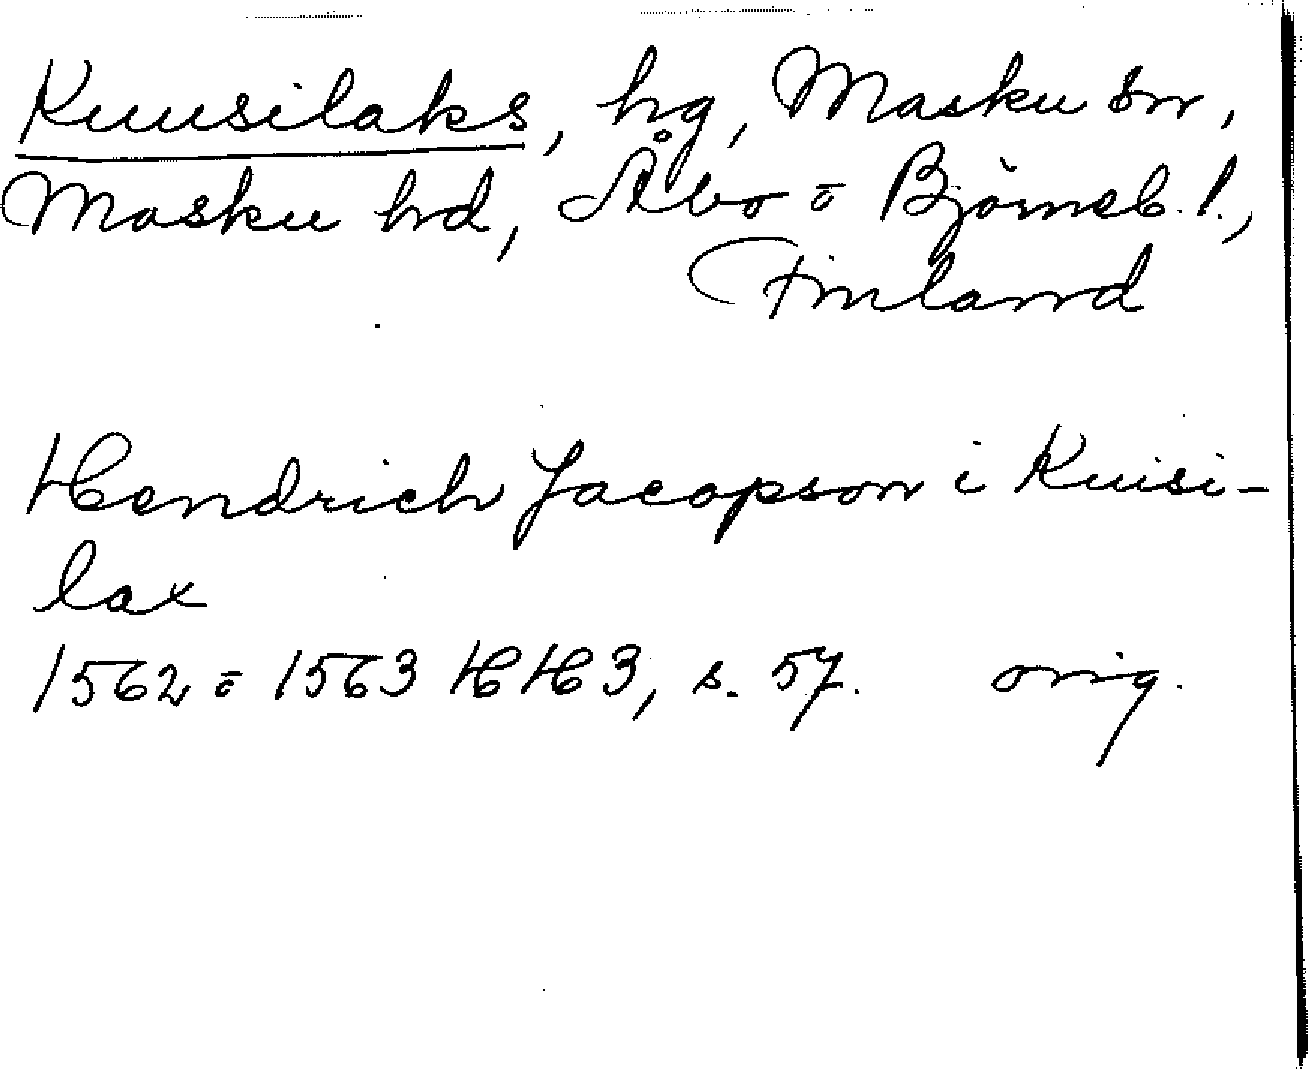 Kuusilaks, hg, Masku sn,
Masku hd, Åbo o Björneb. l.,
Finland
Hendrich Jacopson i Kuisi-
lax
1562 o 1563 HH3, s. 57. orig.